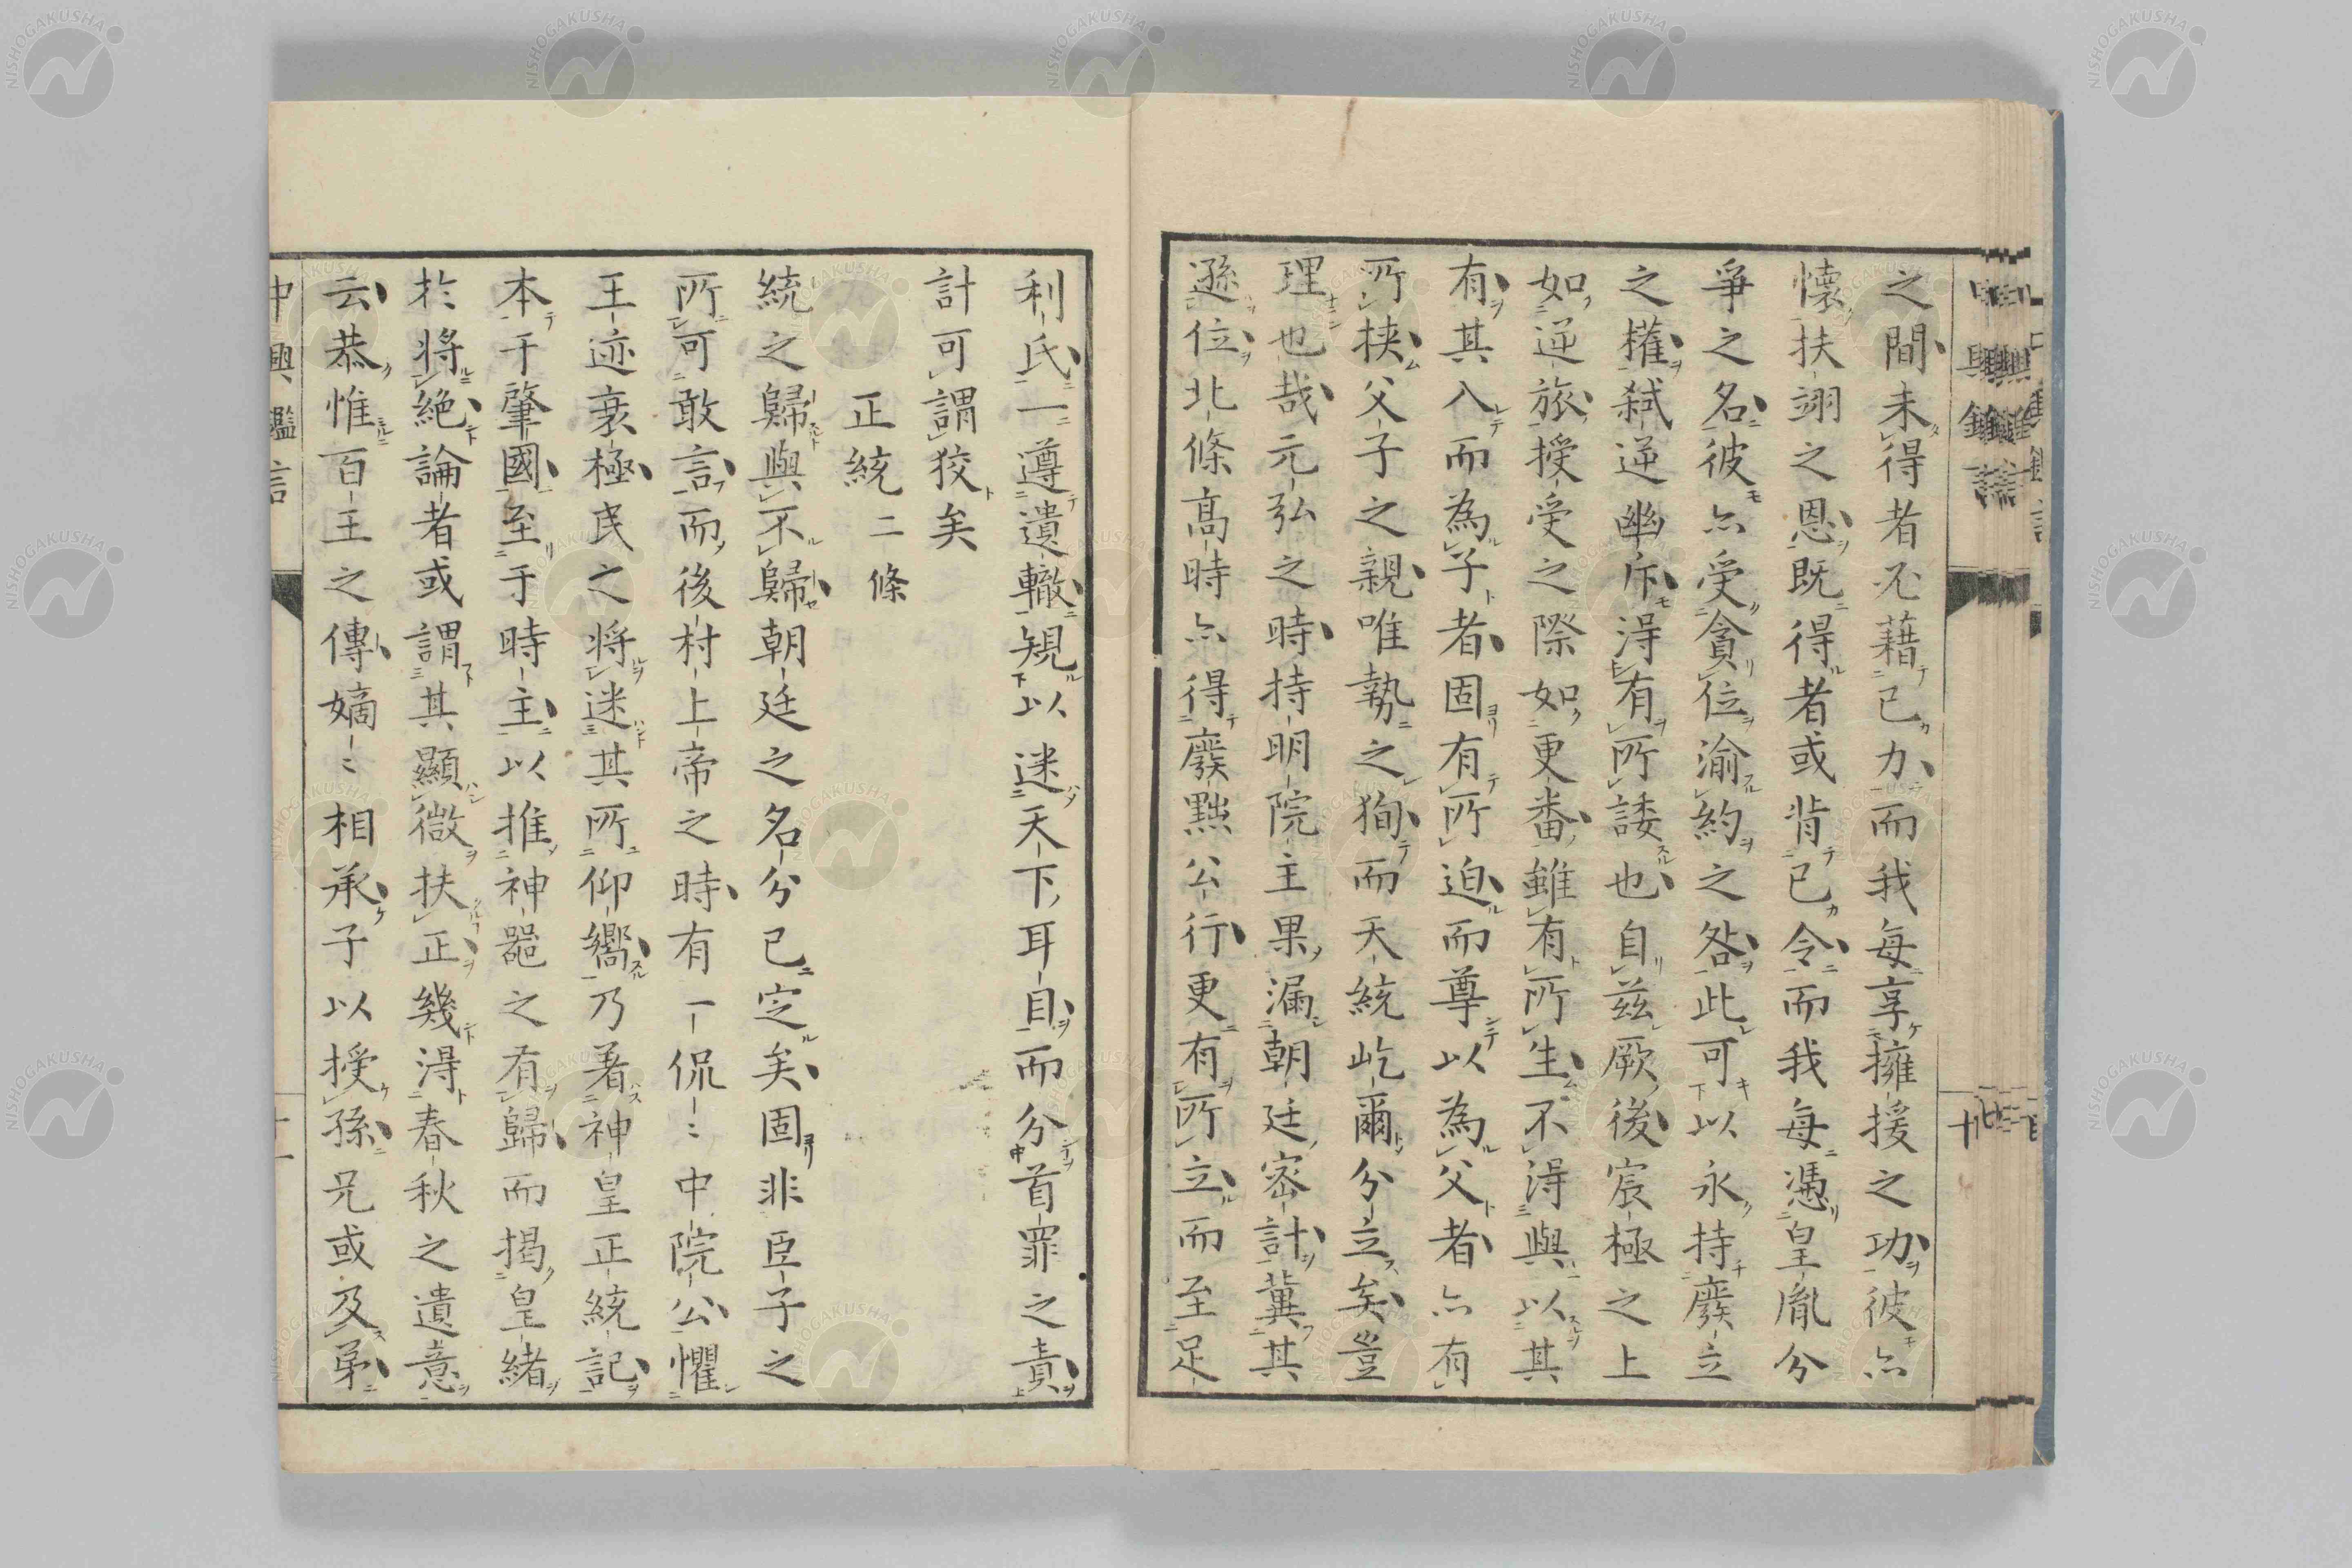 之間未得者不藉已力而我每享擁援之功彼亦
懷扶翊之恩既得者或背已令而我每憑皇胤分
爭之名彼亦受貪位渝約之咎此可以永持廢立
之權弑逆幽斥得有所諉也自茲厥後宸極之上
如逆旅授受之際如更番雖有所生不得與以其
有其入而為子者固有所迫而尊以為父者亦有
所挾父子之親唯勢之狥而天統屹爾分立矣豈
理也哉元弘之時持明院主果漏朝廷密計冀其
遜位北條高時亦得廢黜公行更有所立而至足
利氏一遵遺轍規以迷天下耳目而分首罪之責
計可謂狡矣
正統二條
統之歸與不歸朝廷之名分已定矣固非臣子之
所可敢言而後村上帝之時有一侃〻中院公懼
王迹衰極民之將迷其所仰嚮乃著神皇正統記
本于肇國至于時主以推神器之有歸而揭皇緒
於將絕論者或謂其顯微扶正幾得春秋之遺意
云恭惟百王之傳嫡〻相承子以授孫兄或及弟
中興鑑言
十一
NISHOGAKUSHA